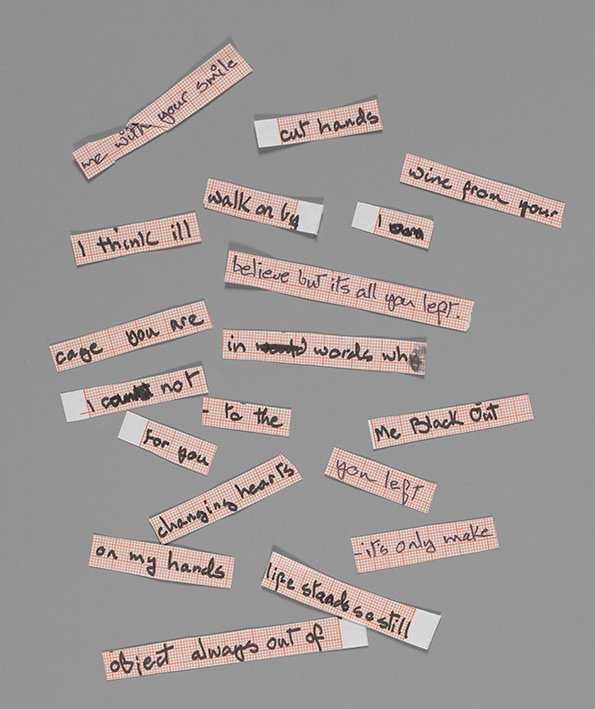 me with your smile
cut hands
wine from your
walk on by
I
I think ill
believe but its all you left.
cage you are
in words
I not
- to the
Me Black Out
for you
you left
changing hearts
- it's only make
on my hands
life stands so still
object always out of